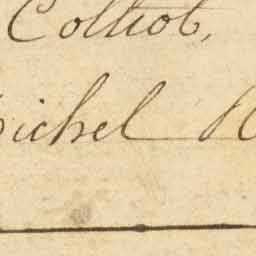 Colliot,
ichel